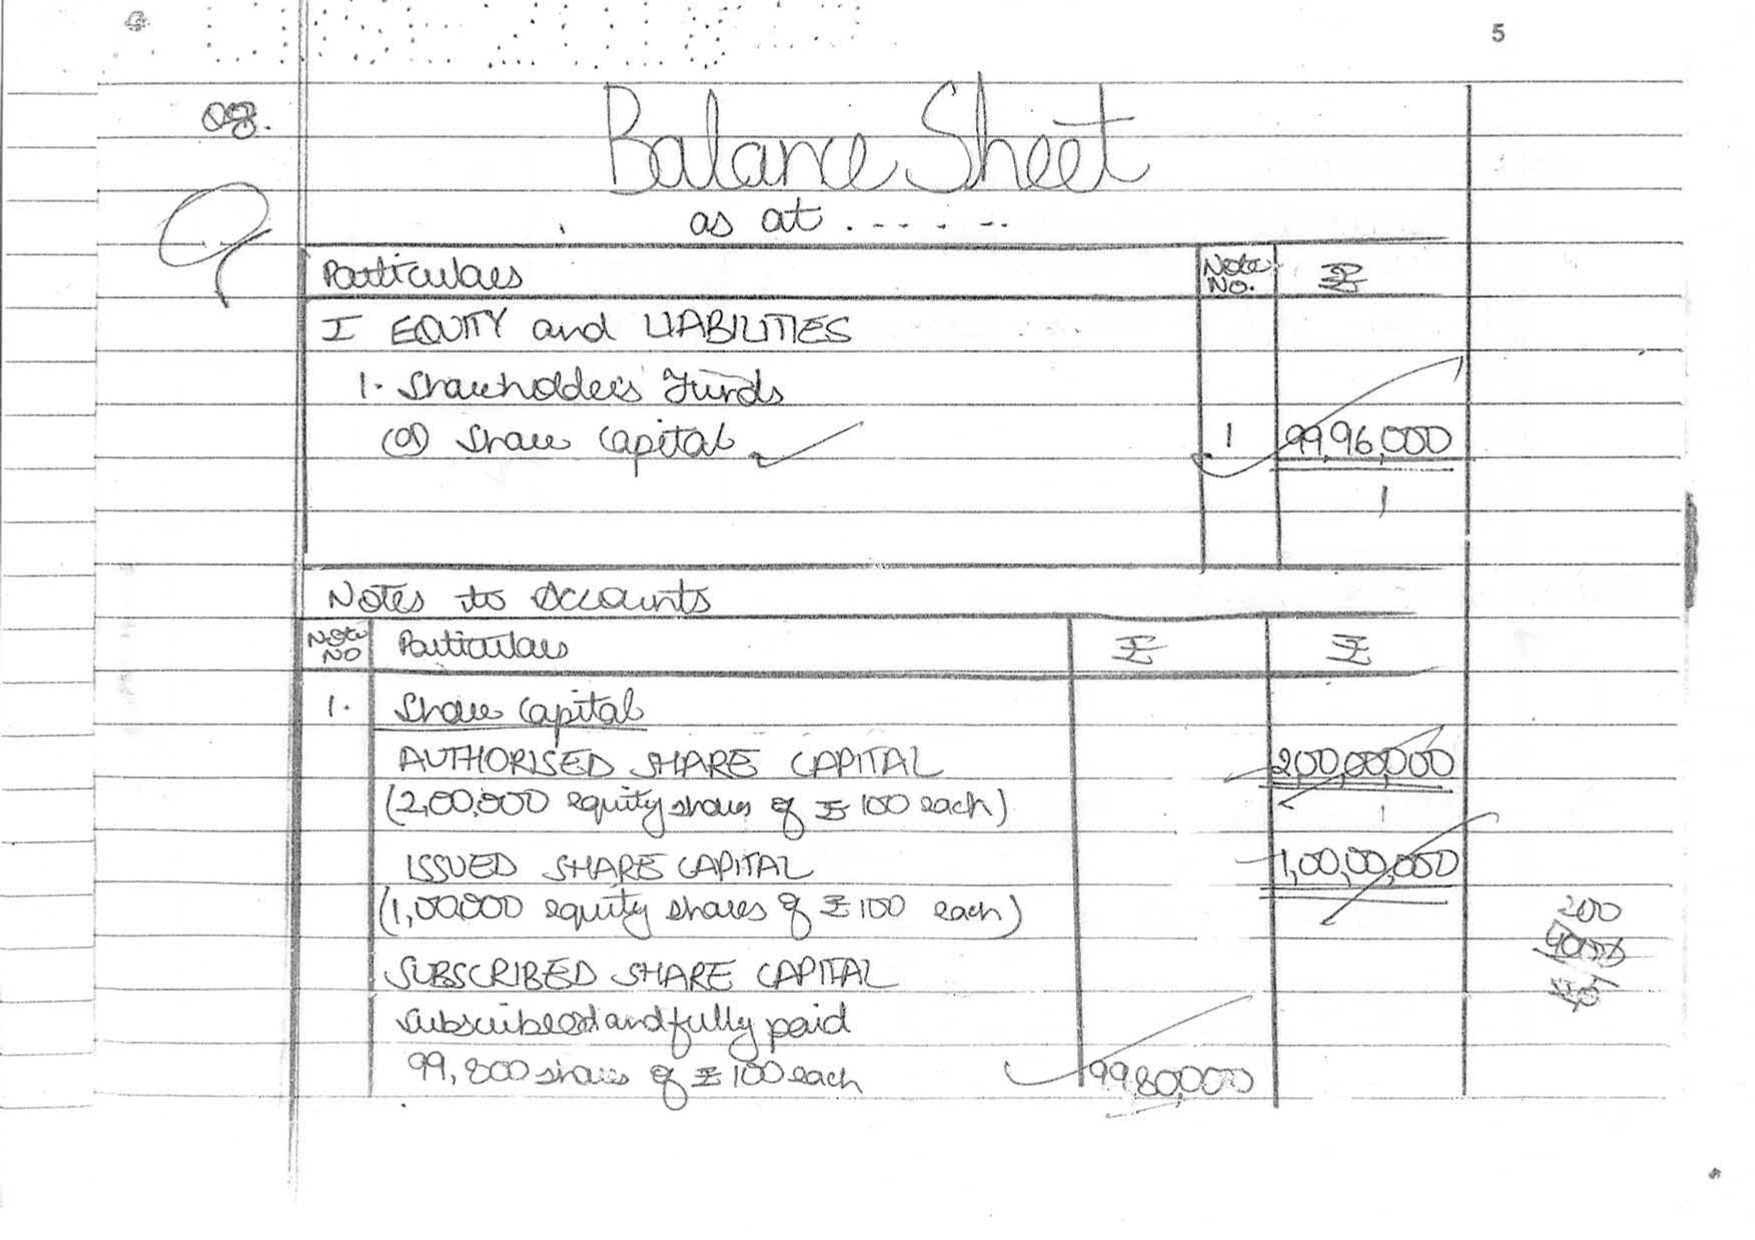 5
Q8.
Balance Sheet
as at . - - . - - -
Particulars Note No. ₹
I EQUITY and LIABILITIES
1. Shareholder's Funds
(a) Share Capital 1 99,96,000
1
Notes to Accounts
Note No Particulars ₹ ₹
1. Share Capital
AUTHORISED SHARE CAPITAL 2,00,00,000
(2,00,000 equity shares of ₹ 100 each)
1
ISSUED SHARE CAPITAL 1,00,00,000
(1,00,000 equity shares of ₹ 100 each)
200
SUBSCRIBED SHARE CAPITAL
Subscribed and fully paid
99,800 shares of ₹ 100 each 99,80,000